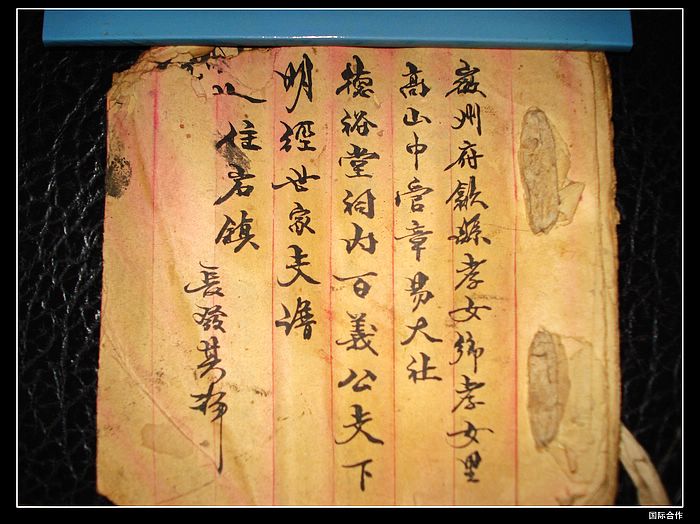 徽州府歙縣孝女鄉孝女里
高山中管章易大社
德裕堂祠内百義公支下
明經世家支譜
住岩鎮
長發其祥
国际合作